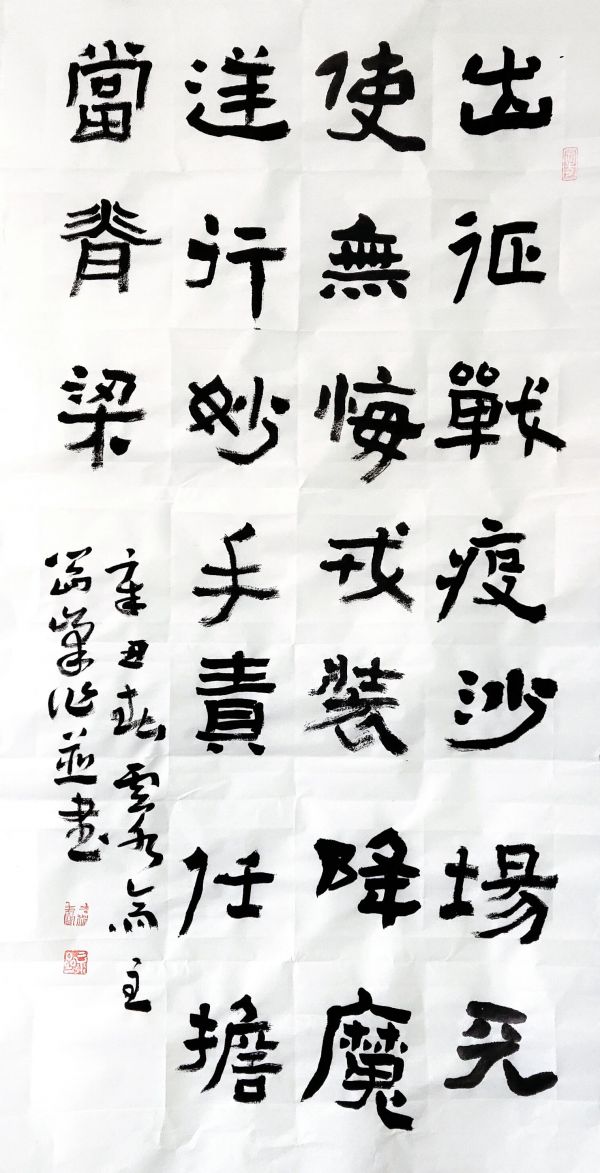 出征戰疫沙場天
使無悔戎裝降魔
逆行妙手責任擔
當脊梁
辛丑春雲水齋主
作並書